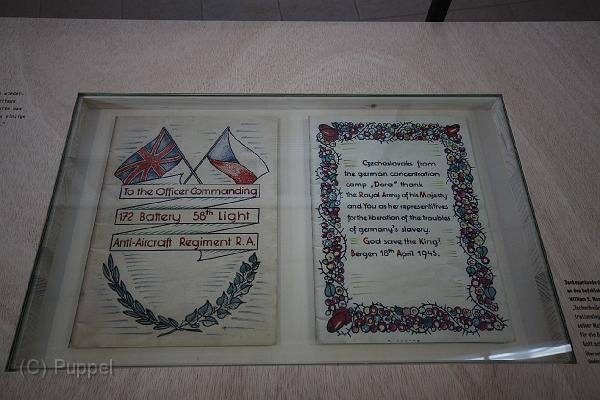 To the Officer Commanding
172 Battery 58th Light
Anti-Aircraft Regiment R.A.
Czechoslovaks from
the german concentration
camp „Dora" thank
the Royal Army of his Majesty
and You as her representitives
for the liberation of the troubles
of germany's slavery.
God save the King!
Bergen 18th April 1945.
(C) Puppel